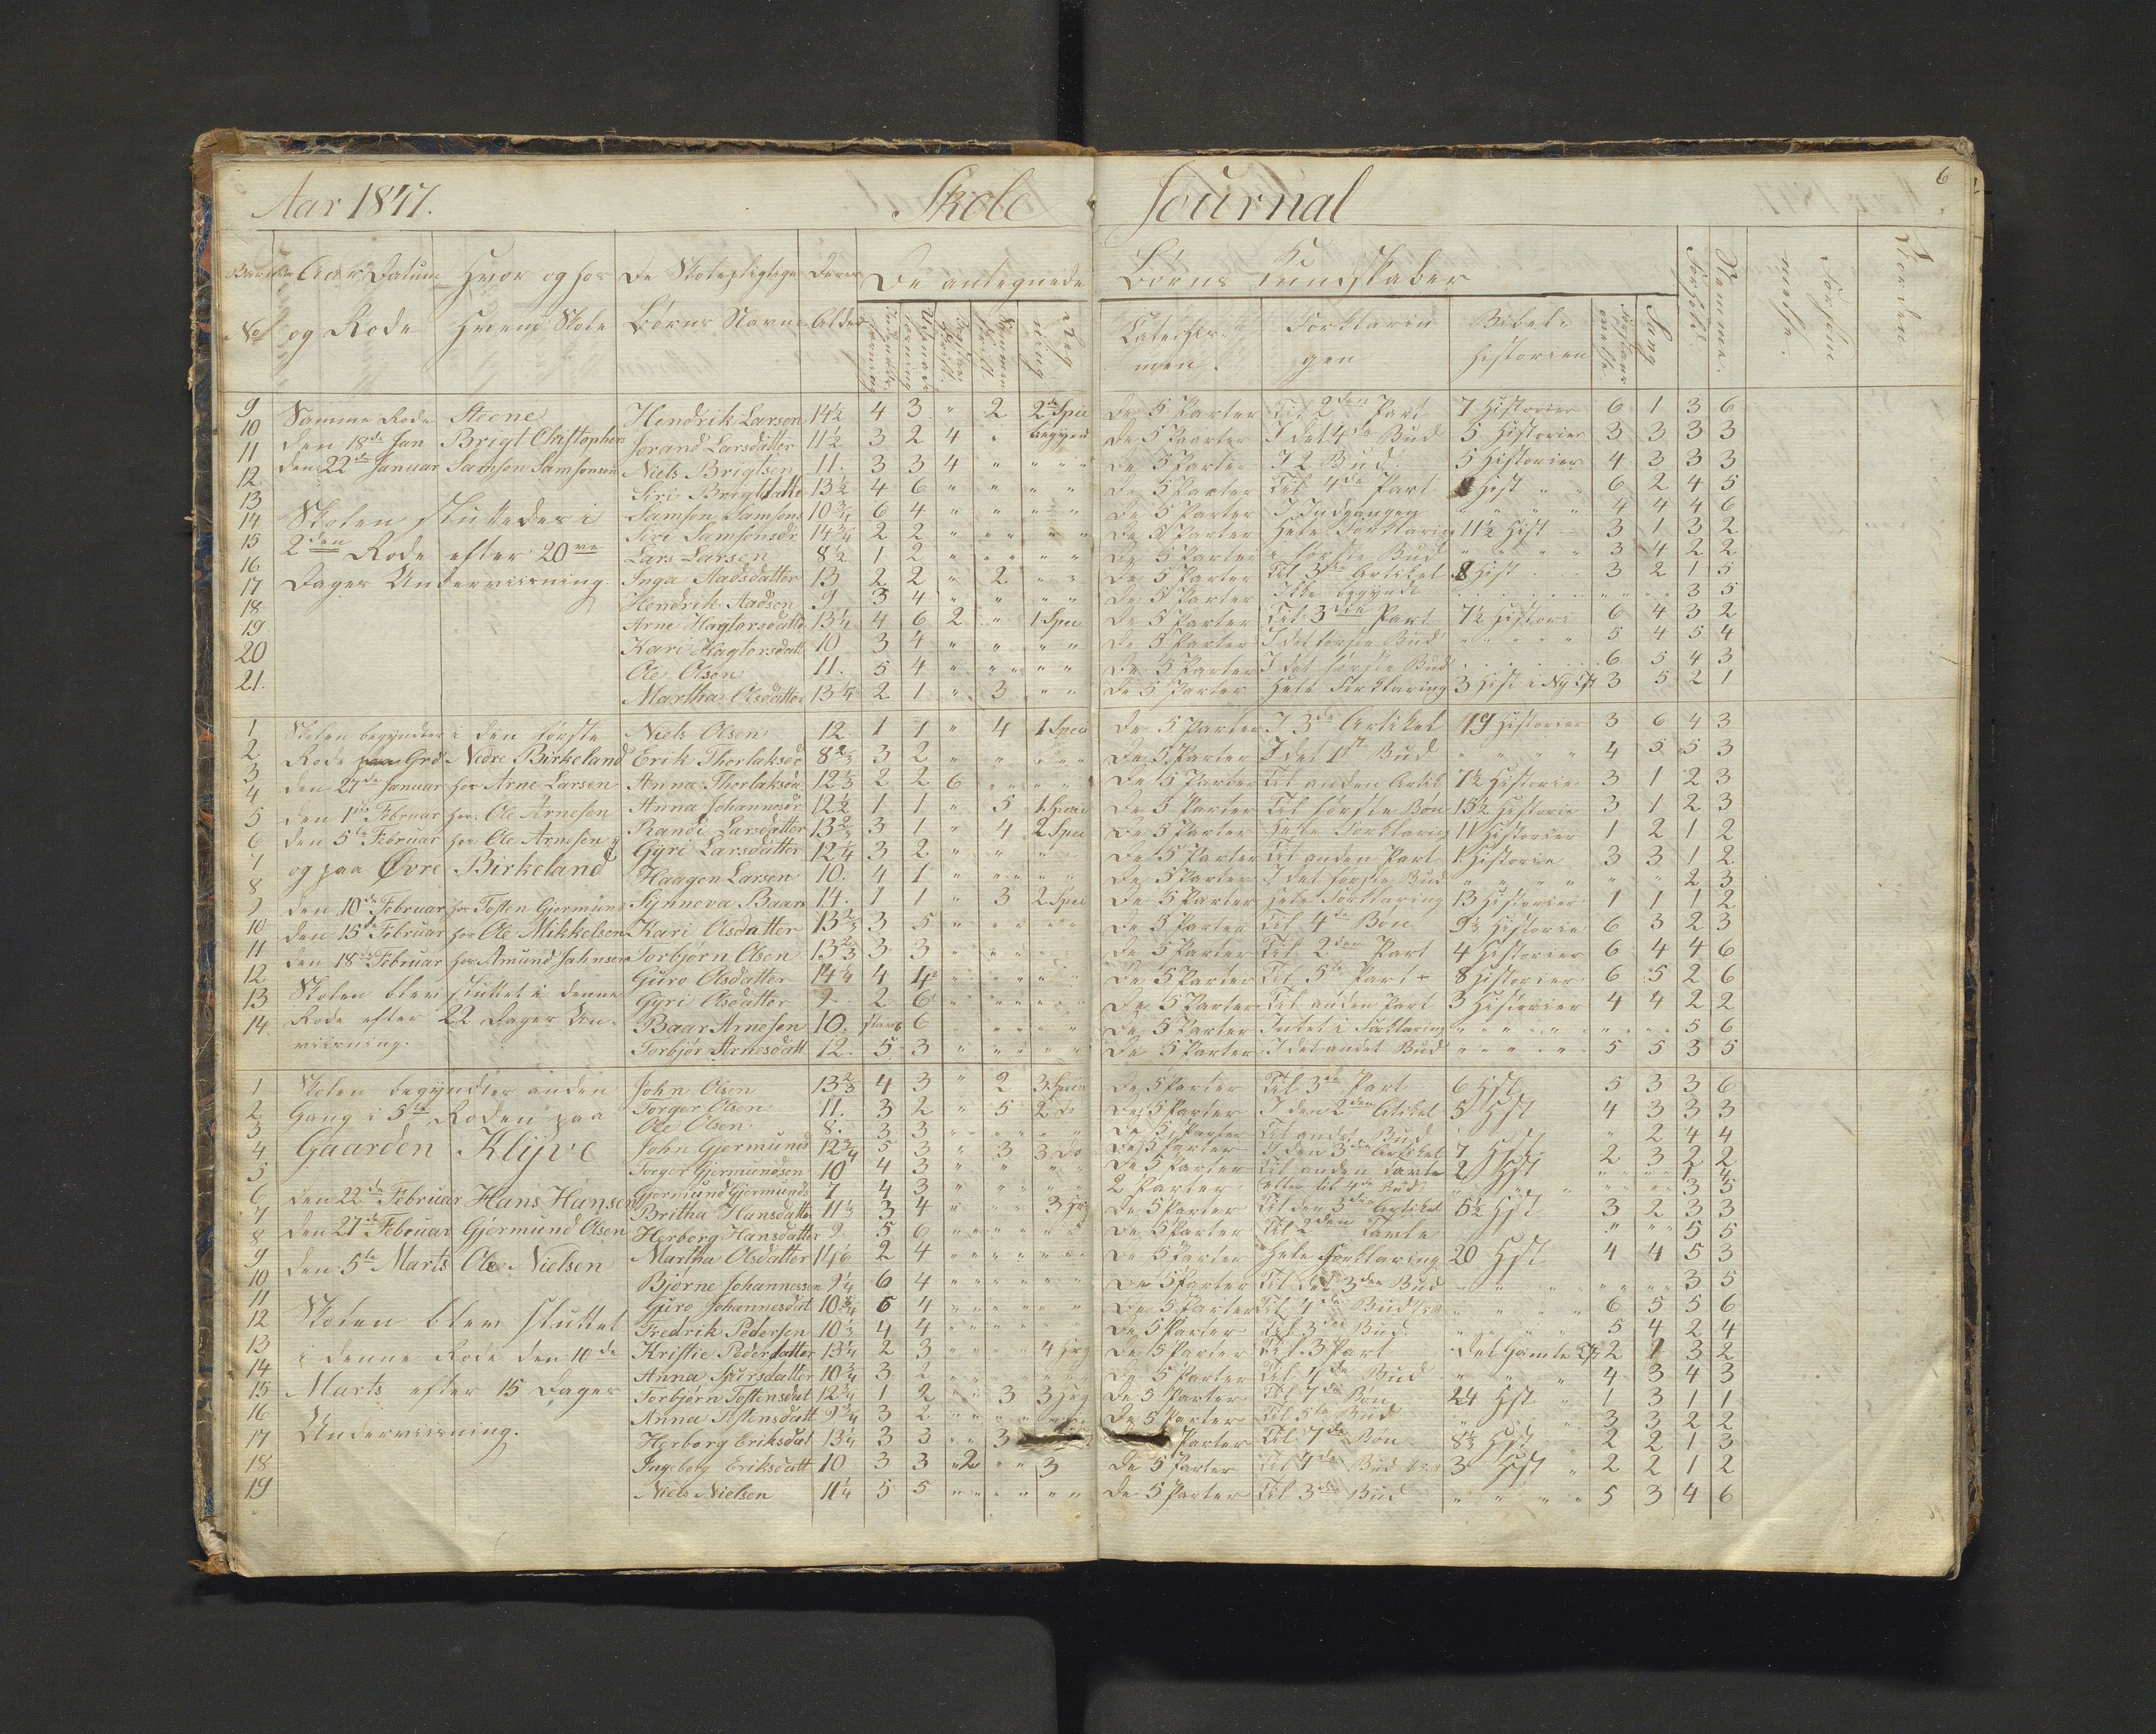 6
Aar 1847. Skole Journal
No Aar Datum og Rode Hvor og hos Hvem Skole De Skolepligtige Børns Navne Deres Alder De antegnede Børns Kundskaber Forhold Nemme Forsømmelse
Catechismen Forklaringen Bibelhistorien Sang
9 Samme Rode Steene Hendrik Larsen 14½ 4 3 " 2 2de Spec De 5 Parter Til 2den Part 7 Historier 6 1 3 6
10 den 18de Jan Brigt Christophers Jorand Larsdatter 11½ 3 2 4 " begynd De 5 Parter I det 4de Bud 5 Historier 3 3 3 3
11 den 22de Januar Samson Samsonsen Niels Brigtsen 11. 3 3 4 " " " De 5 Parter I 2 Bud 5 Historier 4 3 3 3
12 Siri Brigtdatte 13½ 4 6 " " " " De 5 Parter Til 4de Part 8 Hist " " 6 2 4 5
13 Skolen sluttedes i Samson Samsons 10¾ 6 4 " " " " De 5 Parter I Indgangen " " " " 4 4 4 6
14 2den Rode efter 20ve Siri Samsonsdr 14¾ 2 2 " " " " De 5 Parter Hele Forklaring 11½ Hist 3 1 3 2
15 Dages Underviisning. Lars Larsen 8½ 1 2 " " " " De 5 Parter i første Bud " " " " 3 4 2 2
16 Inga Aadsdatter 13 2 2 " 2 " " De 5 Parter Til 3die Artikel 8 Hist 3 2 1 5
17 Hendrik Aadsen 9 3 4 " " " " De 5 Parter Ikke begyndt " " " " 3 5
18 Arne Hagtorsdatte 13¼ 4 6 2 " 1 Spec De 5 Parter Til 3die Part 7½ Histori 6 4 3 2
19 Kari Hagtorsdatt 10 3 4 " " " " De 5 Parter I det første Bud " " " " 5 4 5 4
20 Ole Olsen 11. 5 4 " " " " De 5 Parter I det første Bud 6 5 4 3
21. Martha Olsdatter 13¼ 2 1 " 3 " " De 5 Parter Hele Forklaring 3 Hist i Ny Tst 3 5 2 1
1 Skolen begyndtes i den første Niels Olsen 12. 1 1 " 4 1 Spec De 5 Parter I 3de Artikel 19 Historier 3 6 4 3
2. Rode paa Grd Nedre Birkeland Erik Thorlaksør 8⅔ 3 2 " " " " De 5 Parter I det 1st Bud " " " " 4 5 5 3
3 den 27de Januar hos Arne Larsen Anna Thorlaksdr 12⅓ 2 2 6 " " " De 5 Parter Til anden Artik 7½ Historie 3 1 2 3
4 den 1ste Februar hos Ole Arnesen Anna Johannesdr 12½ 1 1 " 5 1 Spec De 5 Parter Til første Bøn 15½ Historie 3 1 2 3
5 den 5te Februar hos Ole Arnesen y Randi Larsdatter 13⅔ 3 1 " 4 2 Spec De 5 Parter Hele Forklaring 11 Historier 1 2 1 2
6 og paa Øvre Birkeland Gyri Larsdatter 12¼ 3 2 " " " De 5 Parter Til anden Part 1 Historie 3 3 1 2
7 Haagen Larsen 10. 4 1 " " " " De 5 Parter I det første Bud " " " " " " 2 3
8 den 10de Februar hos Tosten Gjermund Synneva Baars 14. 1 1 " 3 2 Spec De 5 Parter Hele Forklaring 13 Historier 1 1 1 2
9 den 15de Februar hos Ole Mikkelsen Kari Olsdatter 13⅔ 3 5 " " " " De 5 Parter Til 4de Bøn 9½ Historie 6 3 2 3
10 den 18de Februar hos Amund Johnsen Torbjørn Olsen 13⅔ 3 3 " " " " De 5 Parter Til 2den Part 4 Historier 6 4 4 6
11 Skolen blev sluttet i denne Guro Olsdatter 14¼ 4 4 " " " " De 5 Parter Til 5te Part 8 Historier 6 5 2 6
12 Rode efter 22 Dages Un- Gyri Olsdatter 9 2 6 " " " " De 5 Parter Til anden Part 3 Historier 4 4 2 2
13 viisning. Baar Arnesen 10. stav 6 6 " " " " De 5 Parter Intet i Forklaring " " " " " " 5 6
14. Torbjør Arnesdatt 12. 5 3 " " " " De 5 Parter I det andet Bud " " " " 5 5 3 5
1 Skolen begyndtes anden John Olsen 13⅔ 4 3 " 2 3 Speci De 5 Parter Til 3de Part 6 Hst 5 3 3 6
2 Gang i 5te Roden paa Torger Olsen 11. 3 2 " 5 2 do De 5 Parter I den 2den Atikel 5 Hst 4 3 3 3
3 Gaarden Klyve Ole Olsen 8. 3 3 " " " " De 5 Parter Til andet Bud " 2 4 4
4 John Gjermunds 12¾ 5 3 " 3 3 do De 5 Parter I den 3die Artikel 7 Hst 2 3 2 2
5 Torger Gjermundsen 10 4 3 " " " " De 5 Parter Til anden Tavle 2 Hst
6 den 22de Februar Hans Hansen Gjermund Gjermunds 7 4 3 " " " " 2 Parter efter til 4de Bud " " " " 3 5
7 den 27de Februar Gjermund Olsen Britha Hansdatter 11½ 3 4 " " " 3 De 5 Parter Til den 3die Artikel 5½ Hst 3 2 3 3
8 den 5te Marts Ole Nielsen Herborg Hansdatter 9 5 6 " " " " De 5 Parter Til 2den Tavle " " " 5 5
9 Martha Olsdatter 14 2 4 " " " " De 5 Parter Hele Forklaring 20 Hst 4 4 5 3
10 Bjørne Johannessen 9¼ 6 4 " " " " De 5 Parter Til det 3den Bud " " " " 3 5
11 Skolen blev sluttet Guro Johannesdat 10¾ 6 4 " " " " De 5 Parter Til 4de Bud " " " " 6 5 5 6
12 Fredrik Pedersen 10½ 4 4 " " " " De 5 Parter Til 3die Bud " " " " 5 4 2 4
13 i denne Rode den 10de Kristie Pedersdatter 13¼ 2 3 " " " 4 De 5 Parter Til 3 Part Det Gamle Tst 2 1 3 2
14 Anna Sjursdatter 10¾ 3 2 " " " " De 5 Parter Til 4de Bud " " " 4 3 4 3
15 Marts efter 15 Dages Torbjørn Tostensdat 12¾ 1 2 " 3 3 De 5 Parter Til 7de Bøn 24 Hst " 1 3 1 1
16 Underviisning. Anna Tostensdatt 9¾ 3 2 " " " De 5 Parter Til 5te Bud " " 3 3 2 2
17 Herborg Eriksdat 13¼ 3 3 " 3 Parter Til 7de Bøn 8½ Hst 2 2 1 3
18 Ingeborg Eriksdatt 10 3 3 " 2 " " 3 De 5 Parter Til 4de Bud 3 Hst " 2 2 1 2
19 Niels Nielsen 11¼ 5 5 " " " " De 5 Parter Til 3die Bud " " " " 5 3 4 6